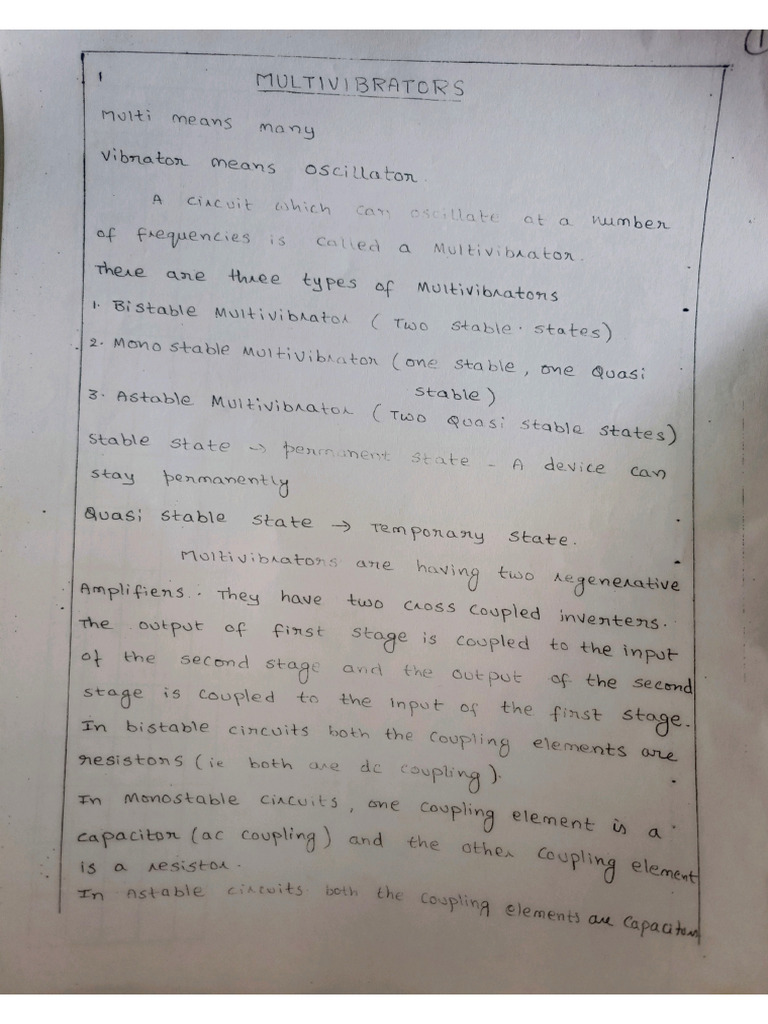 1
1
MULTIVIBRATORS
Multi means many
Vibrator means oscillator.
A circuit which can oscillate at a number
of frequencies is called a Multivibrator.
There are three types of Multivibrators
1. Bistable Multivibrator (Two stable states)
2. Mono stable Multivibrator (one stable, one Quasi
stable)
3. Astable Multivibrator (Two Quasi stable states)
Stable state → permanent state - A device can
stay permanently
Quasi stable state → Temporary state.
Multivibrators are having two regenerative
Amplifiers. They have two cross coupled inverters.
The output of first stage is coupled to the input
of the second stage and the output of the second
stage is coupled to the input of the first stage.
In bistable circuits both the coupling elements are
resistors (ie both are dc coupling).
In Monostable circuits, one coupling element is a
capacitor (ac coupling) and the other coupling element
is a resistor.
In Astable circuits both the coupling elements are capacitors